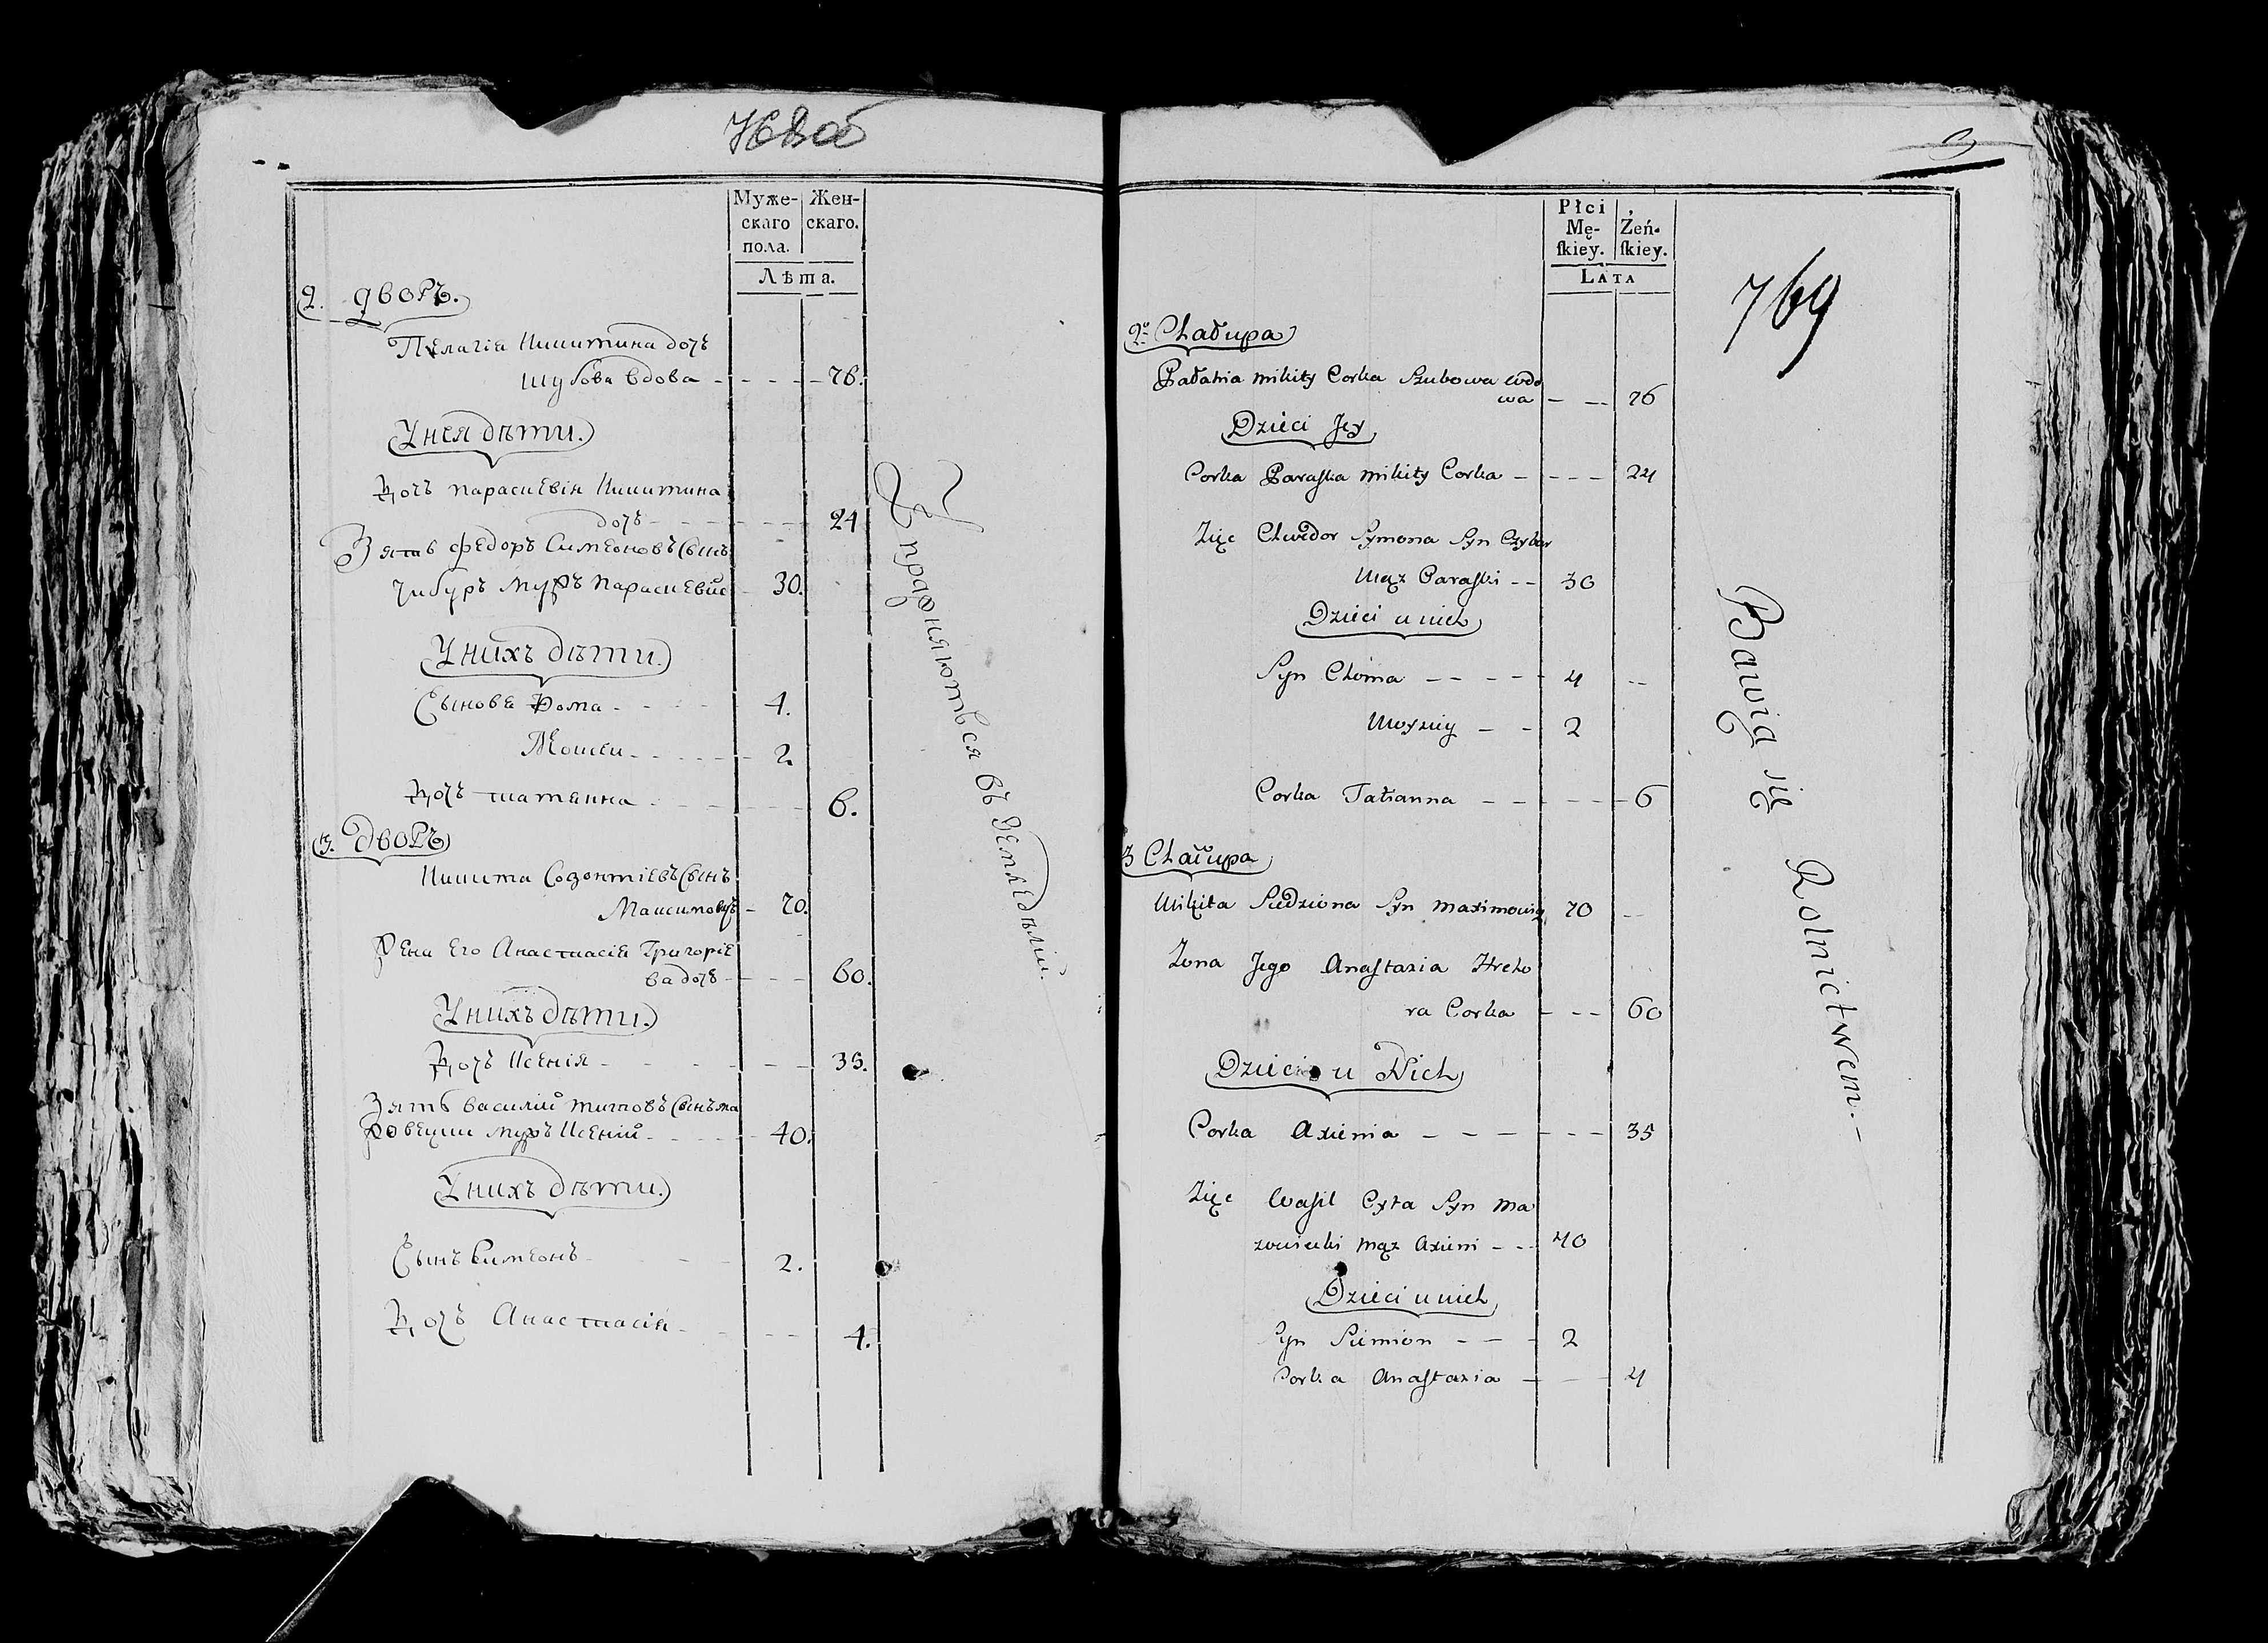 Муже-
скаго
пола.
Жен-
скаго.
Лѣта.
2. дворъ.
Пелагіа Никитина дочь
Шубова вдова - - - - 76.
У нея дѣти.
Дочь Параскевія Никитина
дочь - - - 24
Зять Федоръ Симеоновъ сынъ
Чибуръ мужъ Параскевіи - 30.
У нихъ дѣти.
Сынове Фома - - - - 4.
Моисеи - - - - - 2.
Дочь Татианна - - - - 6.
3. дворъ
Никита Маѯимовичъ - 70.
Жена его Анастасія Григорїе
ва дочь - - - 60.
У нихъ дѣти.
Дочь Ксенія - - - - 35.
Зять Василій Титовъ сынъ Ма
мужъ Ксеніи - - - - 40.
У нихъ дѣти.
Сынъ Симеонъ - - - 2.
Дочь Анастасія - - - 4.
Упражняються въ земледѣліи.
769
Płci
Mę-
ſkiey.
Żeń-
ſkiey.
LATA
2o Chałupa
Pałahia Mikity Corka Szubowa wdo
wa - -- 76
Dzieci Jey
Corka Paraſka Mikity Corka - - - - 24
Zięc Chwedor Symona Syn Czybur
Mąz Paraſki - - 30
Dzieci u nich
Syn Choma - - - - - 4 --
Moyziey - - 2
Corka Tatianna - - - - - 6
3 Chałupa
Mikita Syn Maximowicz 70 --
Zona Jego Anaſtazia Hreho
ra Corka - - - 60
Dzieci u Nich
Corka Axienia - - - - - - 35
Zięc Waſil Syn Ma
mąz Axieni - - - 40
Dzieci u nich
Syn Siemion - - - 2
Corka Anaſtazia - - - 4
Bawią się Rolnictwem.-